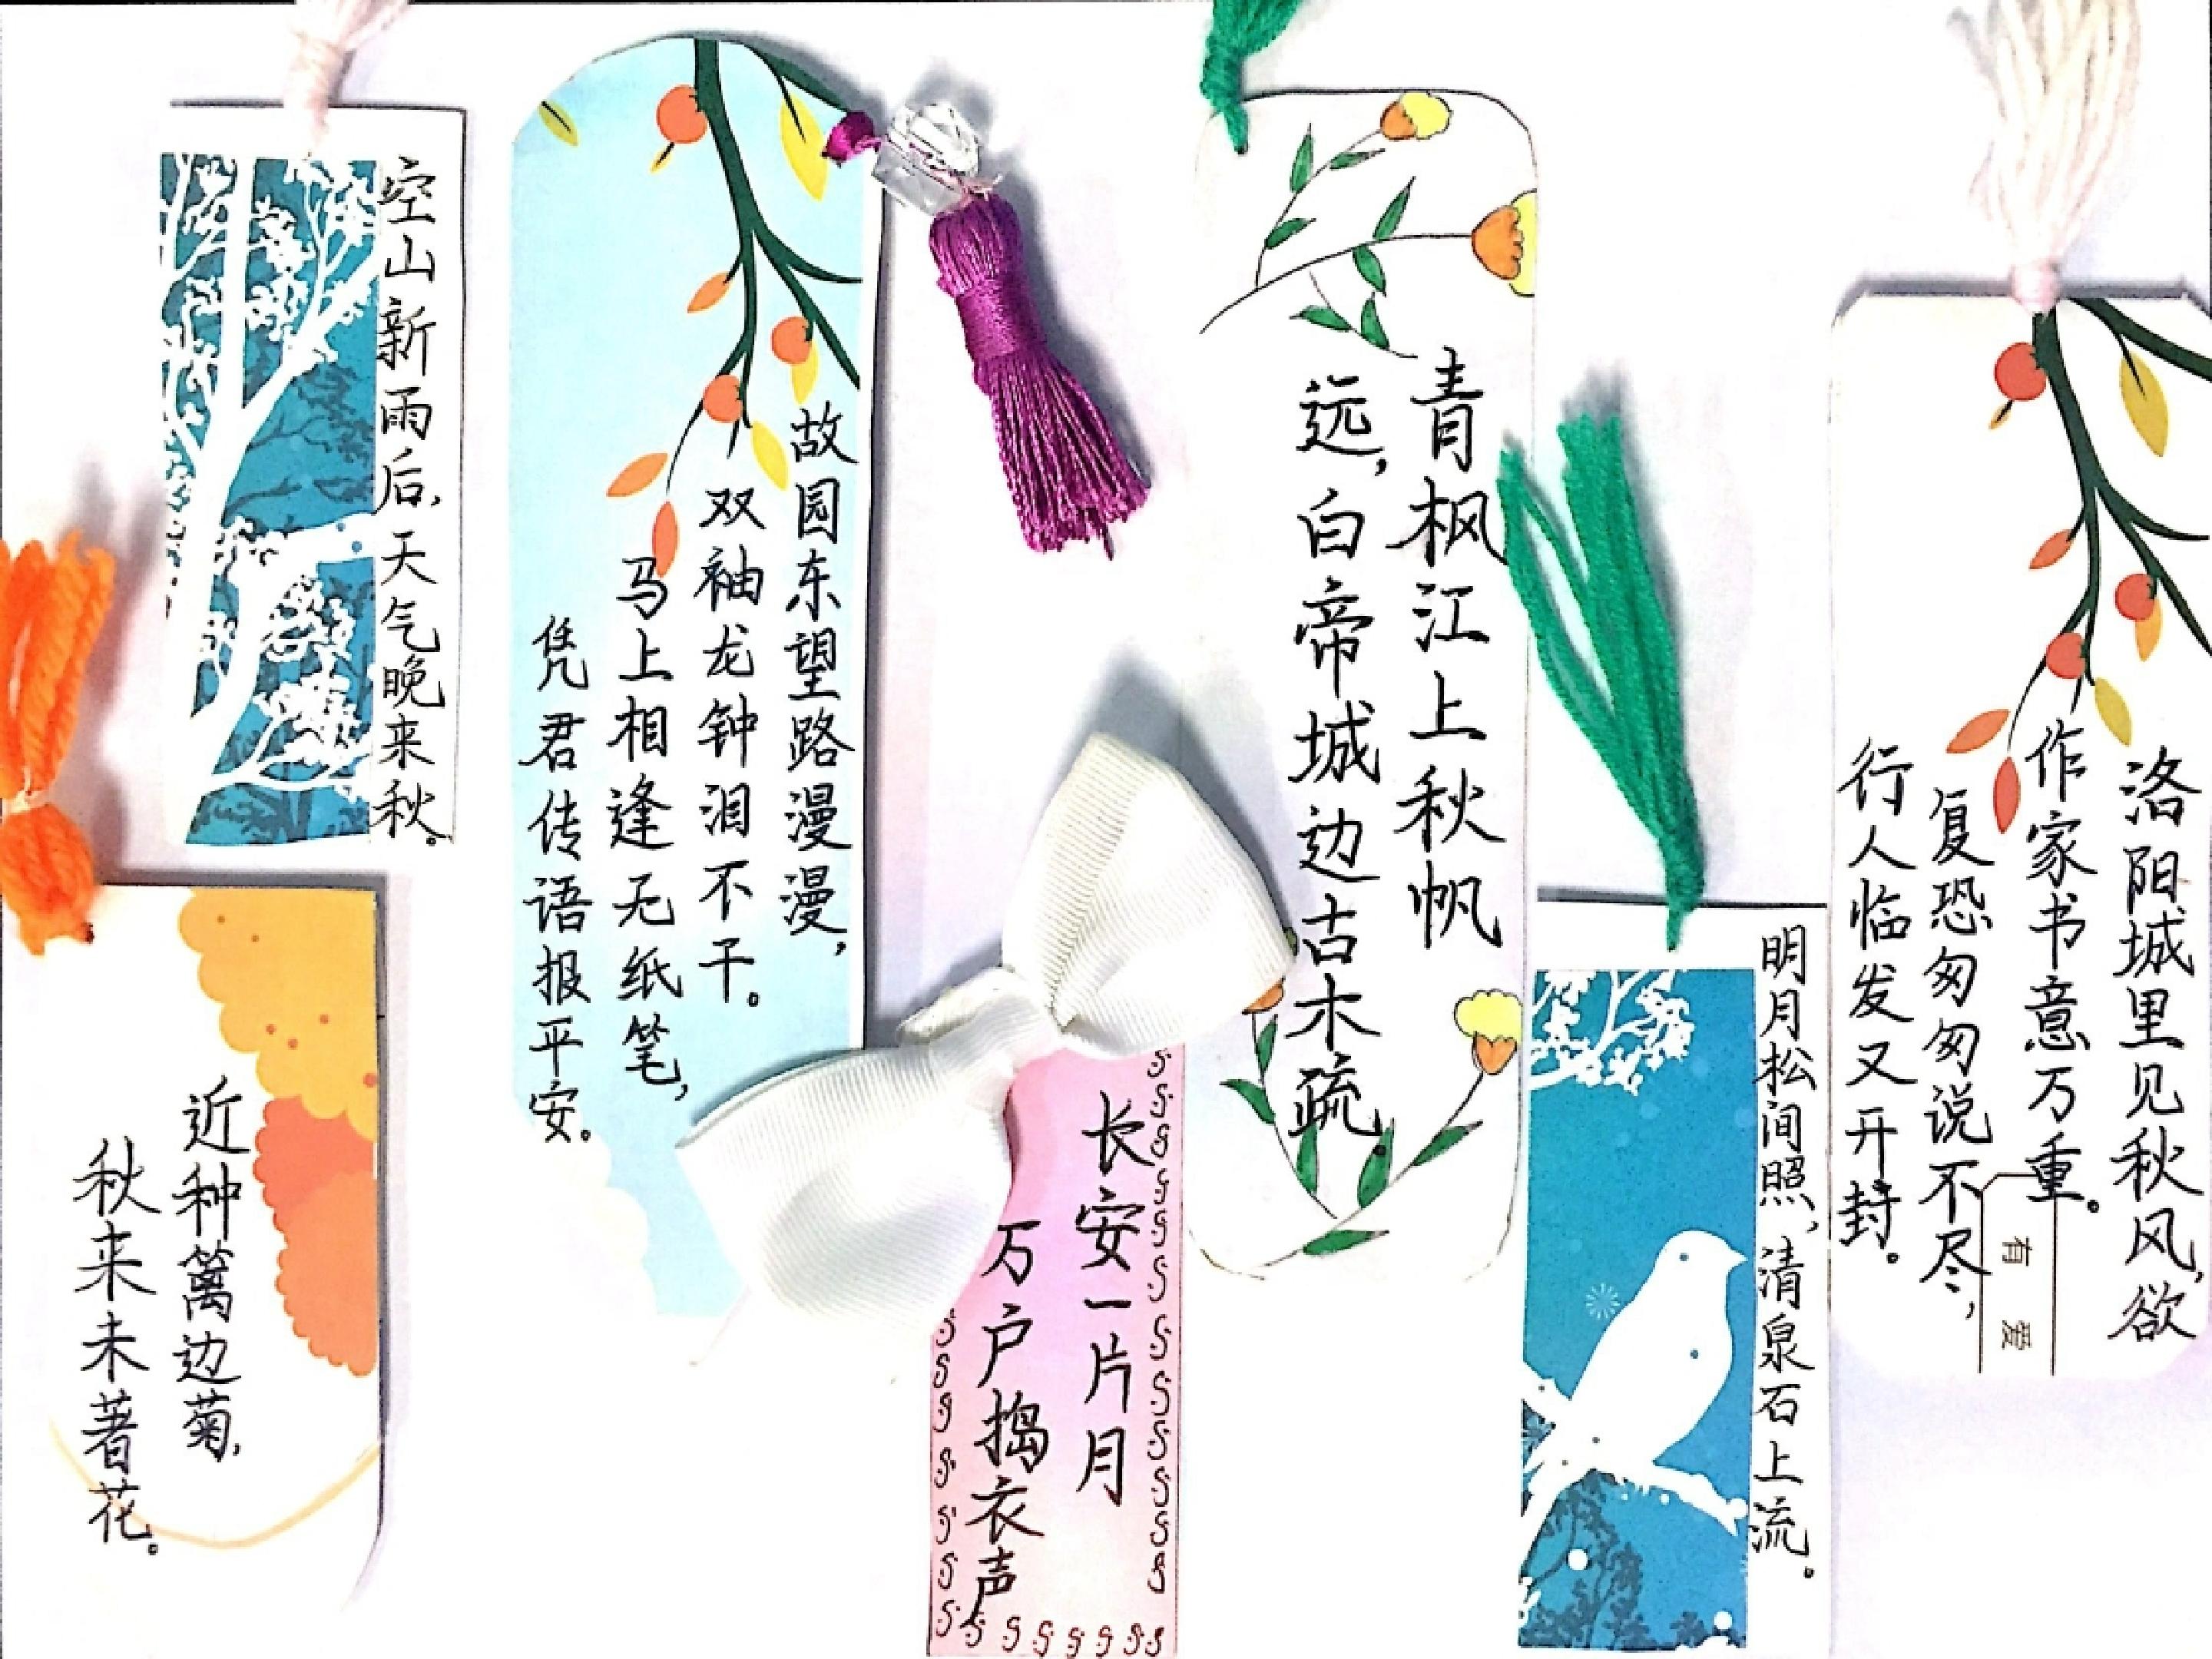 空山新雨后，天气晚来秋。
近种篱边菊，
秋来未著花。
故园东望路漫漫，
双袖龙钟泪不干。
马上相逢无纸笔，
凭君传语报平安。
长安一片月
万户捣衣声
青枫江上秋帆
远，白帝城边古木疏
明月松间照，清泉石上流。
洛阳城里见秋风，欲
作家书意万重。
复恐匆匆说不尽，
行人临发又开封。
有爱